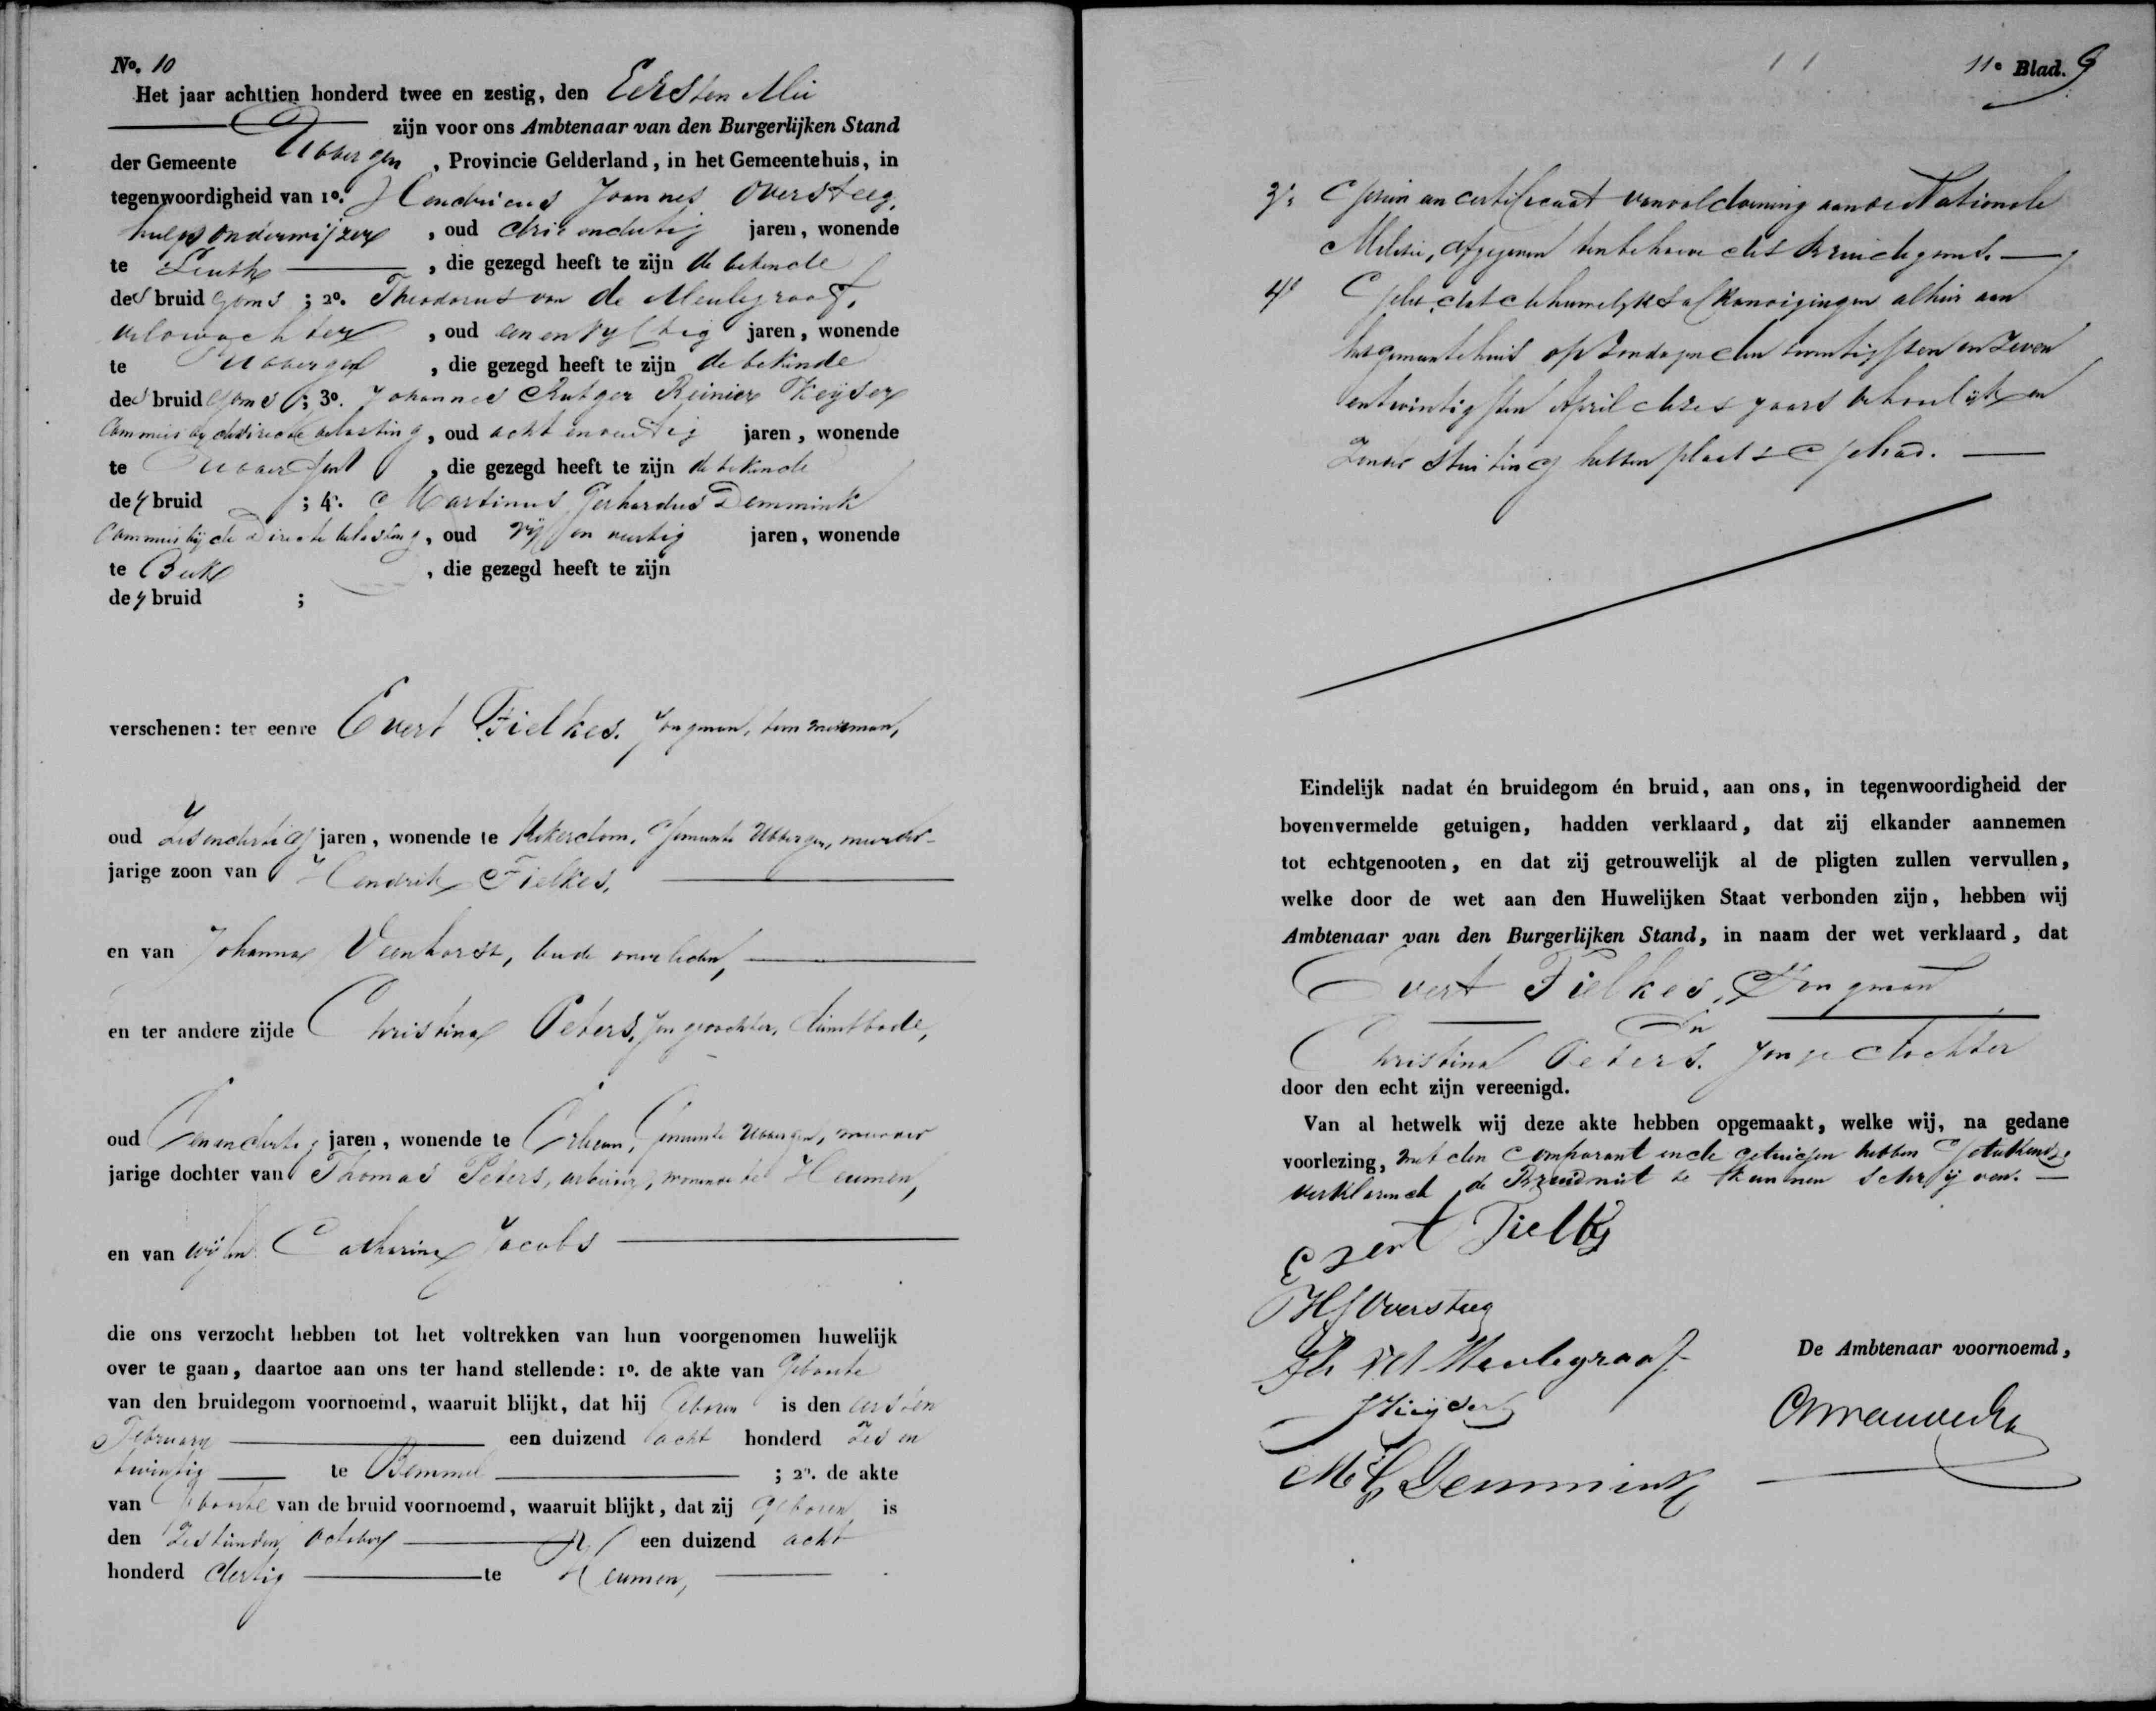 No. 10
Het jaar achttien honderd twee en zestig, den Eersten Mei
zijn voor ons Ambtenaar van den Burgerlijken Stand
der Gemeente Ubbergen, Provincie Gelderland, in het Gemeentehuis, in
tegenwoordigheid van 1o. Hendricus Joannes Oversteeg,
hulponderwijzer, oud drie endertig jaren, wonende
te Leuth, die gezegd heeft te zijn de bekende
des bruidegoms; 2o. Theodorus van de Meulegraaf,
veldwachter, oud een en vijftig jaren, wonende
te Ubbergen, die gezegd heeft te zijn de bekende
des bruidegoms; 3o. Johannes Rutger Reinier Keijser
Commies bij de directe belasting, oud acht en veertig jaren, wonende
te Ubbergen, die gezegd heeft te zijn de bekende
der bruid; 4o. Martinus Gerhardus Demmink
Commies bij de Directe belasting, oud vijf en veertig jaren, wonende
te Beek, die gezegd heeft te zijn
der bruid;
verschenen: ter eenre Evert Tielkes. Jongman, timmerman,
oud Zesendertig jaren, wonende te Kekerdom, Gemeente Ubbergen, meerder-
jarige zoon van Hendrik Tielkes,
en van Johanna Veenhorst, beide overleden,
en ter andere zijde Christina Peters, jongedochter, dienstbode,
oud Eenendertig jaren, wonende te Erlecom, Gemeente Ubbergen, meerder
jarige dochter van Thomas Peters, arbeider, wonende te Heumen,
en van wijlen Catharina Jacobs
die ons verzocht hebben tot het voltrekken van hun voorgenomen huwelijk
over te gaan, daartoe aan ons ter hand stellende: 1o. de akte van Geboorte
van den bruidegom voornoemd, waaruit blijkt, dat hij Geboren is den eersten
February een duizend acht honderd Zes en
twintig te Bemmel; 2o. de akte
van Geboorte van de bruid voornoemd, waaruit blijkt, dat zij geboren is
den Zestienden October een duizend acht
honderd dertig te Heumen,
11e Blad.
3o. Geleverd een certificaat van voldoening aan de Nationale
Militie, afgegeven ten behoeve des Bruidegoms.
4o. dat de huwelyks afkondigingen alhier aan
het gemeentehuis op Zondagen den twintigsten en Zeven
entwintigsten April dezes jaars behoorlijk en
Zonder stuiting hebben plaats gehad.
Eindelijk nadat én bruidegom én bruid, aan ons, in tegenwoordigheid der
bovenvermelde getuigen, hadden verklaard, dat zij elkander aannemen
tot echtgenooten, en dat zij getrouwelijk al de pligten zullen vervullen,
welke door de wet aan den Huwelijken Staat verbonden zijn, hebben wij
Ambtenaar van den Burgerlijken Stand, in naam der wet verklaard, dat
Evert Tielkes, Jongman
En
Christina Peters. Jonge dochter
door den echt zijn vereenigd.
Van al hetwelk wij deze akte hebben opgemaakt, welke wij, na gedane
voorlezing, met den Comparant en de getuigen hebben Geteekend,
verklarende de Bruid niet te kunnen schrijven.
Evert Tielkes
HJ Oversteeg
Th vd Meulegraaf
De Ambtenaar voornoemd,
JKeijser
MG Demmink